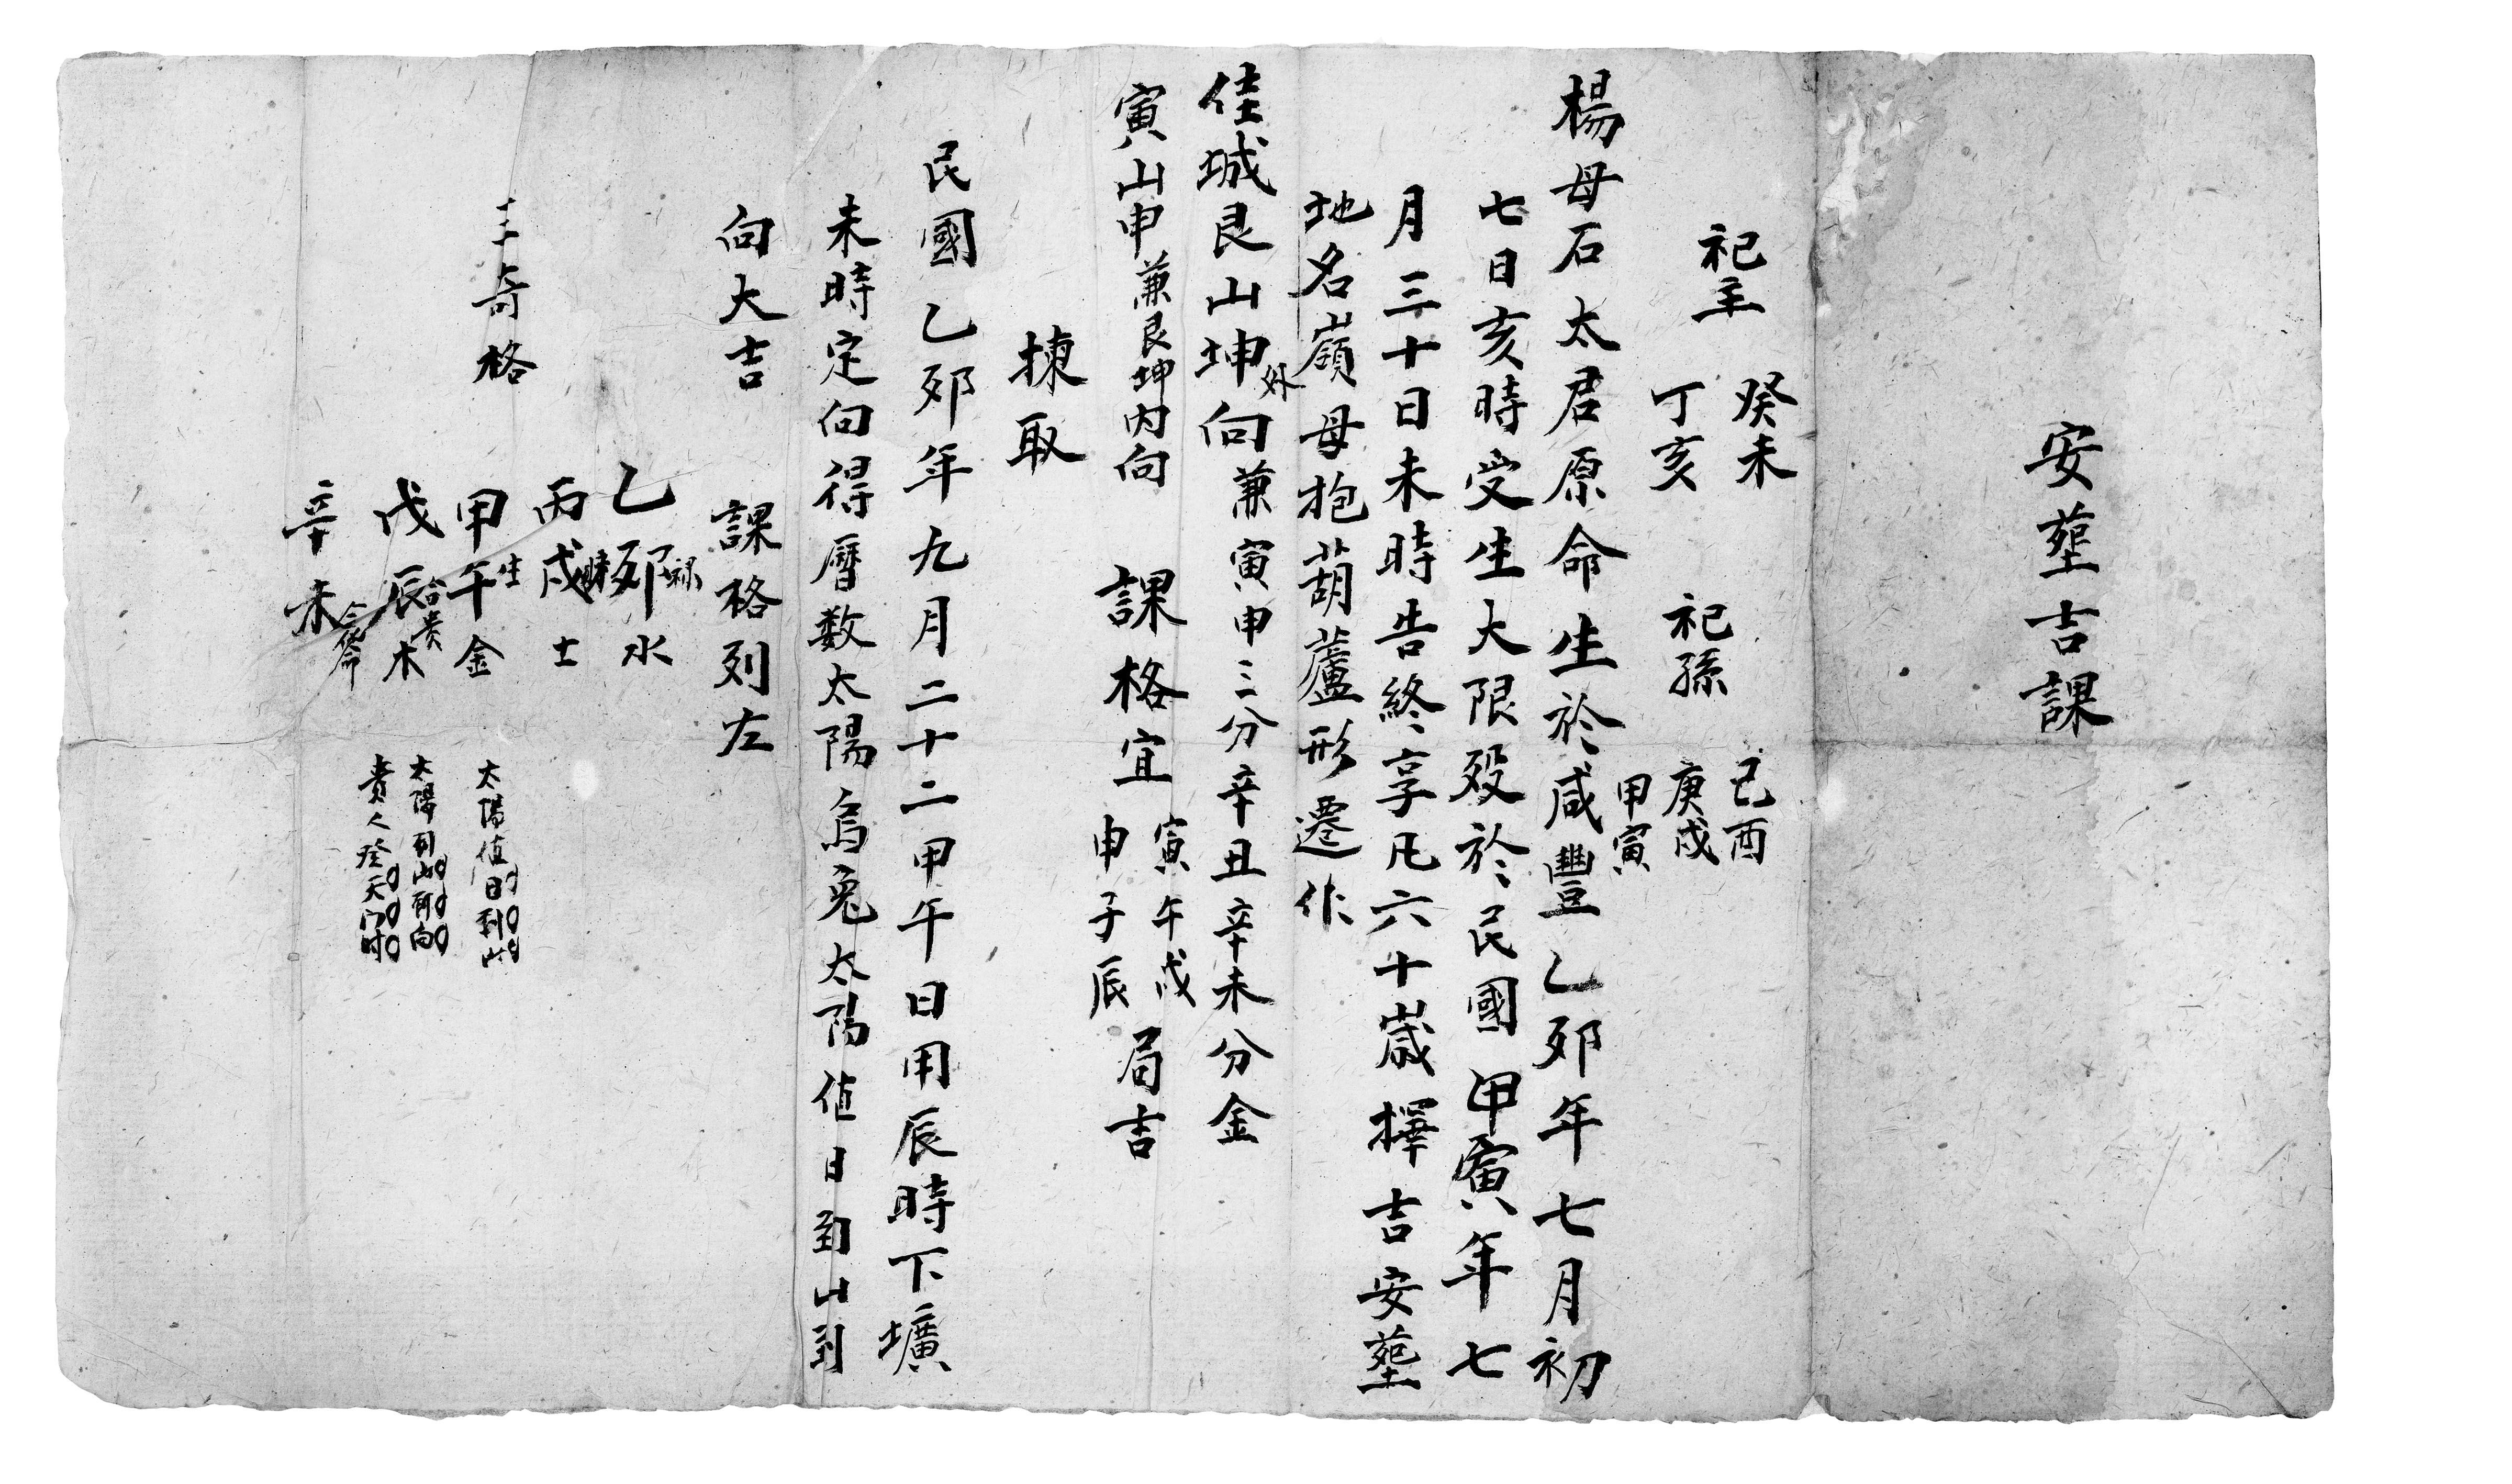 安塟吉課
祀主 癸未 丁亥 祀孫 己酉 庚戌 甲寅
楊母石太君原命生於咸豐乙夘年七月初
七日亥時受生大限殁於民國甲寅年七
月三十日未時告終享凡六十歲擇吉安塟
地名嶺母抱葫蘆形遷作
佳城艮山坤外向兼寅申三分辛丑辛未分金
寅山申兼艮坤内向 課格宜 寅午戌 申子辰 局吉
揀取
民國乙夘年九月二十二甲午日用辰時下壙
未時定向得曆数太陽烏兔太陽值日到山到
向大吉 課格列左
三奇格
乙夘水 禄
丙戌土
甲午金 生
戊辰木 合貴
辛未
太陽值日到山
太陽到山到向
貴人登天门时